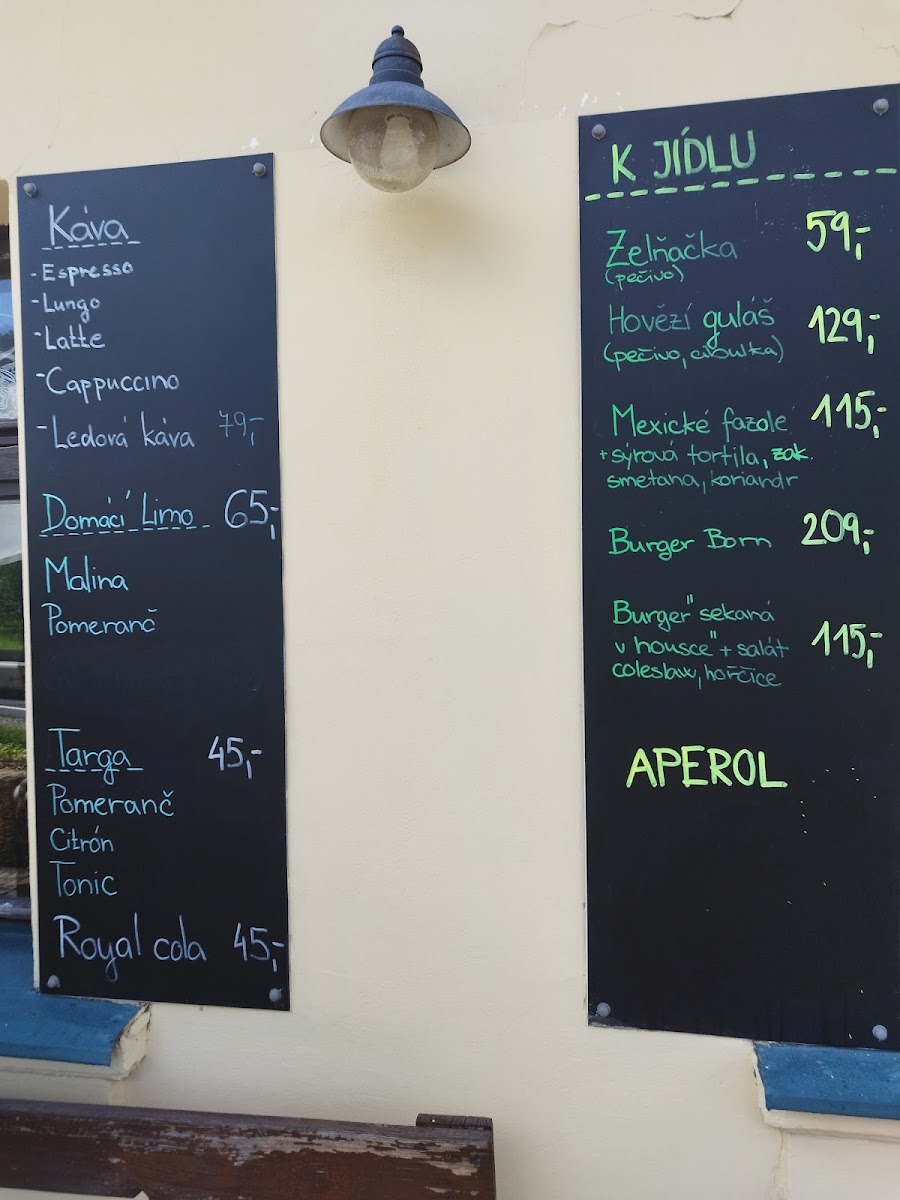 Káva
- Espresso
- Lungo
- Latte
- Cappuccino
- Ledová káva 79,-
Domácí Limo 65,-
Malina
Pomeranč
Targa 45,-
Pomeranč
Citrón
Tonic
Royal cola 45,-
K JÍDLU
Zelňačka 59,-
(pečivo)
Hovězí guláš 129,-
(pečivo, cibulka)
Mexické fazole 115,-
+ sýrová tortila, zak.
smetana, koriandr
Burger Born 209,-
Burger "sekaná
v housce" + salát 115,-
coleslaw, hořčice
APEROL